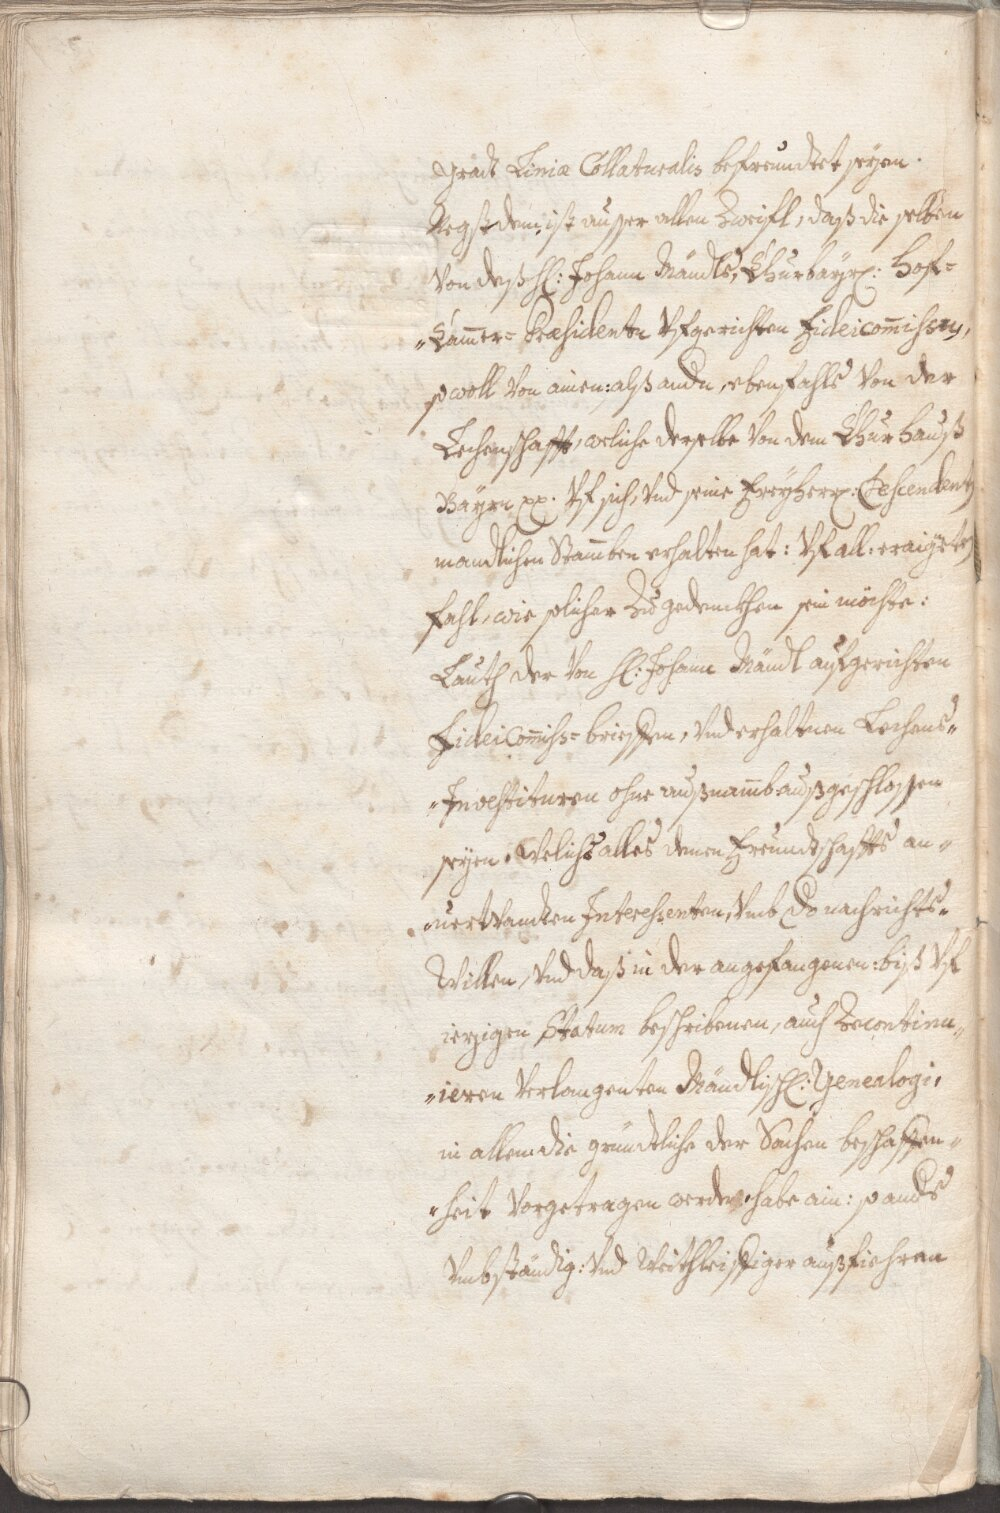 Gradt Liniæ Collateralis befreundtet seyen.
Negst dem, ist ausser allen Zweifl, daß die selben
von deß H: Johann Mändls, Churbayr: Hof-
-Cam̄er- Præsidenten vfgerichten Fideicom̄issen,
sowoll von ainen: alß andn, ebenfahls von der
Lechenschafft, weliche derselbe von dem Chur Hauß
Bayrn xx. vf sich, vnd seine Freyherr: Descendenten
mandlichen Stam̄ben erhalten hat: vf all: eraigeten
fahl, wie solicher zu gedenckhen sein möchte:
Lauth der von H: Johann Mändl aufgerichten
Fideicom̄iss- brieffen, vnd erhaltnen Lechens-
-Investituren ohne außnam̄b außgeschlossen
seyen. Welichs alles denen Freundtschaffts an-
-uerwandten Interessenten, vmb do nachrichts-
willen, vnd daß in der angefangenen: biß vf
iezigen Statum beschribenen, auch zecontinu-
-ieren verlangenten Mändlisch: Genealogi,
in allem die gründtliche der Sachen beschaffen-
-heit vorgetragen werde, habe ain: so anders
vmbständig: vnd weithleiffiger außfiehren